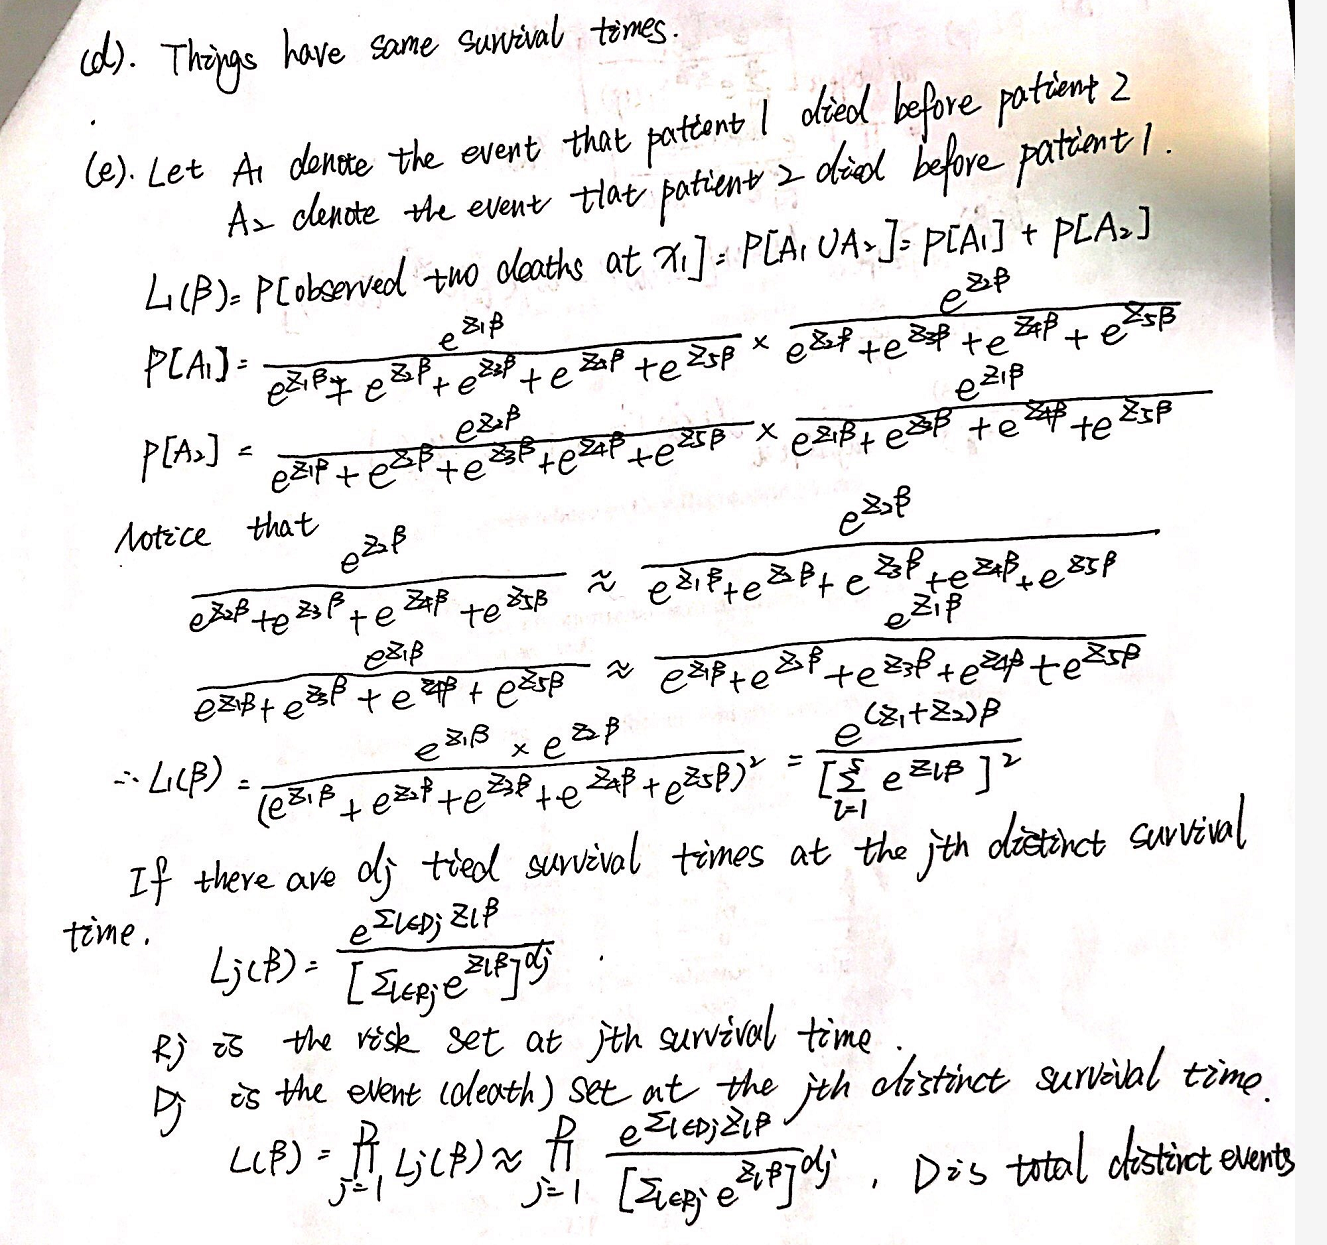 (d). Things have same survival times.
(e). Let A₁ denote the event that patient 1 died before patient 2
A₂ denote the event that patient 2 died before patient 1.
L₁(β) = P[observed two deaths at x₁] = P[A₁ ∪ A₂] = P[A₁] + P[A₂]
P[A₁] = e^{z₁β} / (e^{z₁β} + e^{z₂β} + e^{z₃β} + e^{z₄β} + e^{z₅β}) × e^{z₂β} / (e^{z₂β} + e^{z₃β} + e^{z₄β} + e^{z₅β})
P[A₂] = e^{z₂β} / (e^{z₁β} + e^{z₂β} + e^{z₃β} + e^{z₄β} + e^{z₅β}) × e^{z₁β} / (e^{z₁β} + e^{z₃β} + e^{z₄β} + e^{z₅β})
Notice that
e^{z₂β} / (e^{z₂β} + e^{z₃β} + e^{z₄β} + e^{z₅β}) ≈ e^{z₂β} / (e^{z₁β} + e^{z₂β} + e^{z₃β} + e^{z₄β} + e^{z₅β})
e^{z₁β} / (e^{z₁β} + e^{z₃β} + e^{z₄β} + e^{z₅β}) ≈ e^{z₁β} / (e^{z₁β} + e^{z₂β} + e^{z₃β} + e^{z₄β} + e^{z₅β})
∴ L₁(β) = e^{z₁β} × e^{z₂β} / (e^{z₁β} + e^{z₂β} + e^{z₃β} + e^{z₄β} + e^{z₅β})² = e^{(z₁+z₂)β} / [Σ_{l=1}^{5} e^{z_lβ}]²
If there are dj tied survival times at the jth distinct survival
time.
Lj(β) = e^{Σ_{l∈Dj} z_lβ} / [Σ_{l∈Rj} e^{z_lβ}]^{dj}.
Rj is the risk set at jth survival time.
Dj is the event (death) set at the jth distinct survival time.
L(β) = ∏_{j=1}^{D} Lj(β) ≈ ∏_{j=1}^{D} e^{Σ_{l∈Dj} z_lβ} / [Σ_{l∈Rj} e^{z_lβ}]^{dj}, D is total distinct events